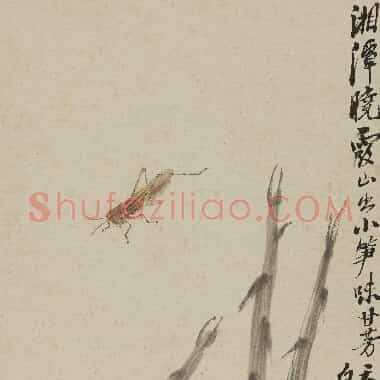 湘潭曉霞山出小筍味甘芳
Shufaziliao.COM